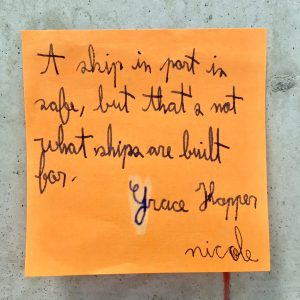 A ship in port is
safe, but that's not
what ships are built
for.
Grace Hopper
nicole